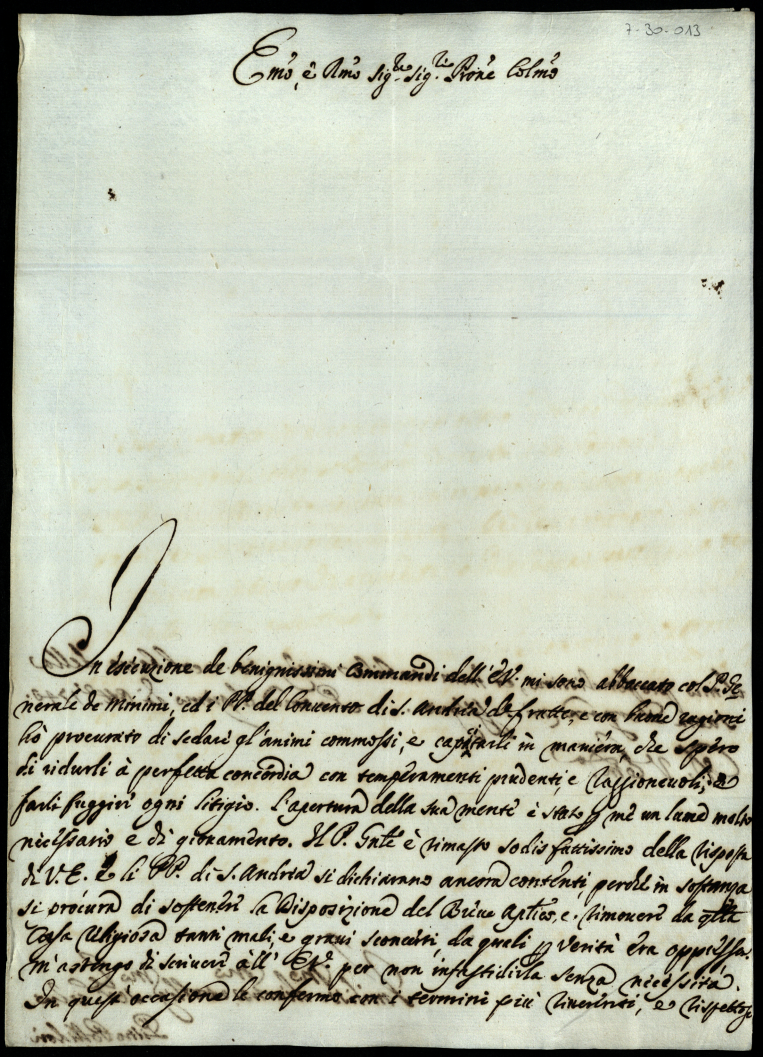 7-30-013
Emo, è Rmo Sig.re Sig.re Prone Colmo
In esecuzione de benignissimi commandi dell'E.V. mi sono abboccato col P. Ge
nerale de Minimi, ed i PP. del Convento di S. Andrea delle fratte, e con buone ragioni
hò procurato di sedare gl'animi commossi, e capitarli in maniera, che spero
di ridurli à perfetta concordia con temperamenti prudenti, e raggioneuoli, e
farli fuggire ogni litigio. L'apertura della sua mente è stato p me un lume molto
necessario e di giouamento. Il P. Gnle è rimasto sodisfattissimo della risposta
di V.E. e li PP. di S. Andrea si dichiarano ancora contenti, perche in sostanza
si procura di sostenere la disposizione del Breue Aplico, e rimouere da qlla
Casa Religiosa tanti mali, e graui sconcerti, da quali p verità era oppressa.
M'astengo di scriuere all'E.V. per non infastidirla senza necessità.
In quest'occasione le confermo con i termini più riuerenti, e rispettosi